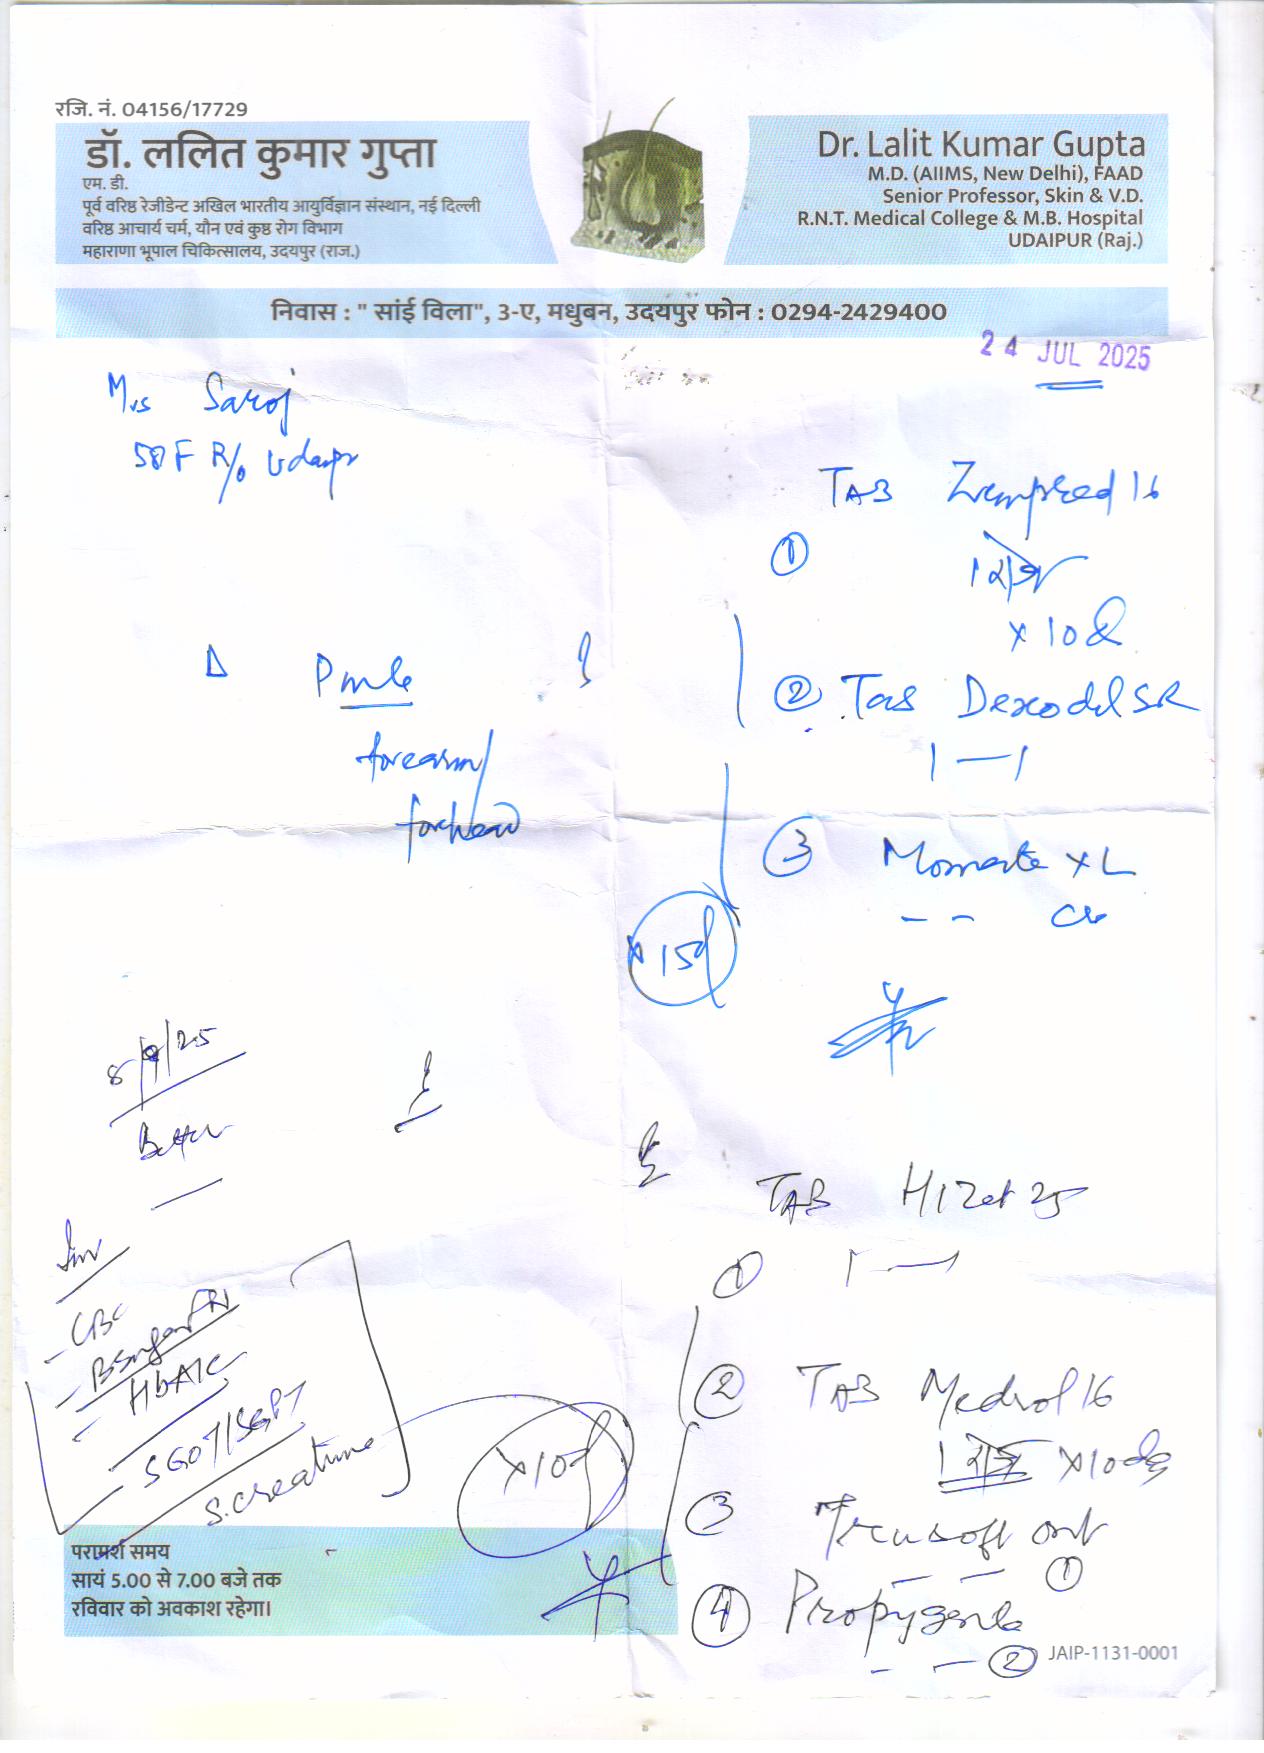 रजि. नं. 04156/17729
डॉ. ललित कुमार गुप्ता
एम. डी.
पूर्व वरिष्ठ रेजीडेन्ट अखिल भारतीय आयुर्विज्ञान संस्थान, नई दिल्ली
वरिष्ठ आचार्य चर्म, यौन एवं कुष्ठ रोग विभाग
महाराणा भूपाल चिकित्सालय, उदयपुर (राज.)
Dr. Lalit Kumar Gupta
M.D. (AIIMS, New Delhi), FAAD
Senior Professor, Skin & V.D.
R.N.T. Medical College & M.B. Hospital
UDAIPUR (Raj.)
निवास : " सांई विला", 3-ए, मधुबन, उदयपुर फोन : 0294-2429400
24 JUL 2025
Mrs Saroj
58 F R/o Udaipr
TAB 16
① 1 रोज
x 10 d
Δ Pmle
forearm/
forehead
② Tab SR
1 — 1
③ Momate XL
- - Cr
x 15d
8/9/25
Better
Inv
- CBC
- HbA1C
- SGOT/SGPT
S. Creatinine
TAB Hizet 25
① 1 — 1
② TAB Medrol 16
1 रोज x 10 d
③ oint
- - ①
④
- - ②
x 10d
परामर्श समय
सायं 5.00 से 7.00 बजे तक
रविवार को अवकाश रहेगा।
JAIP-1131-0001